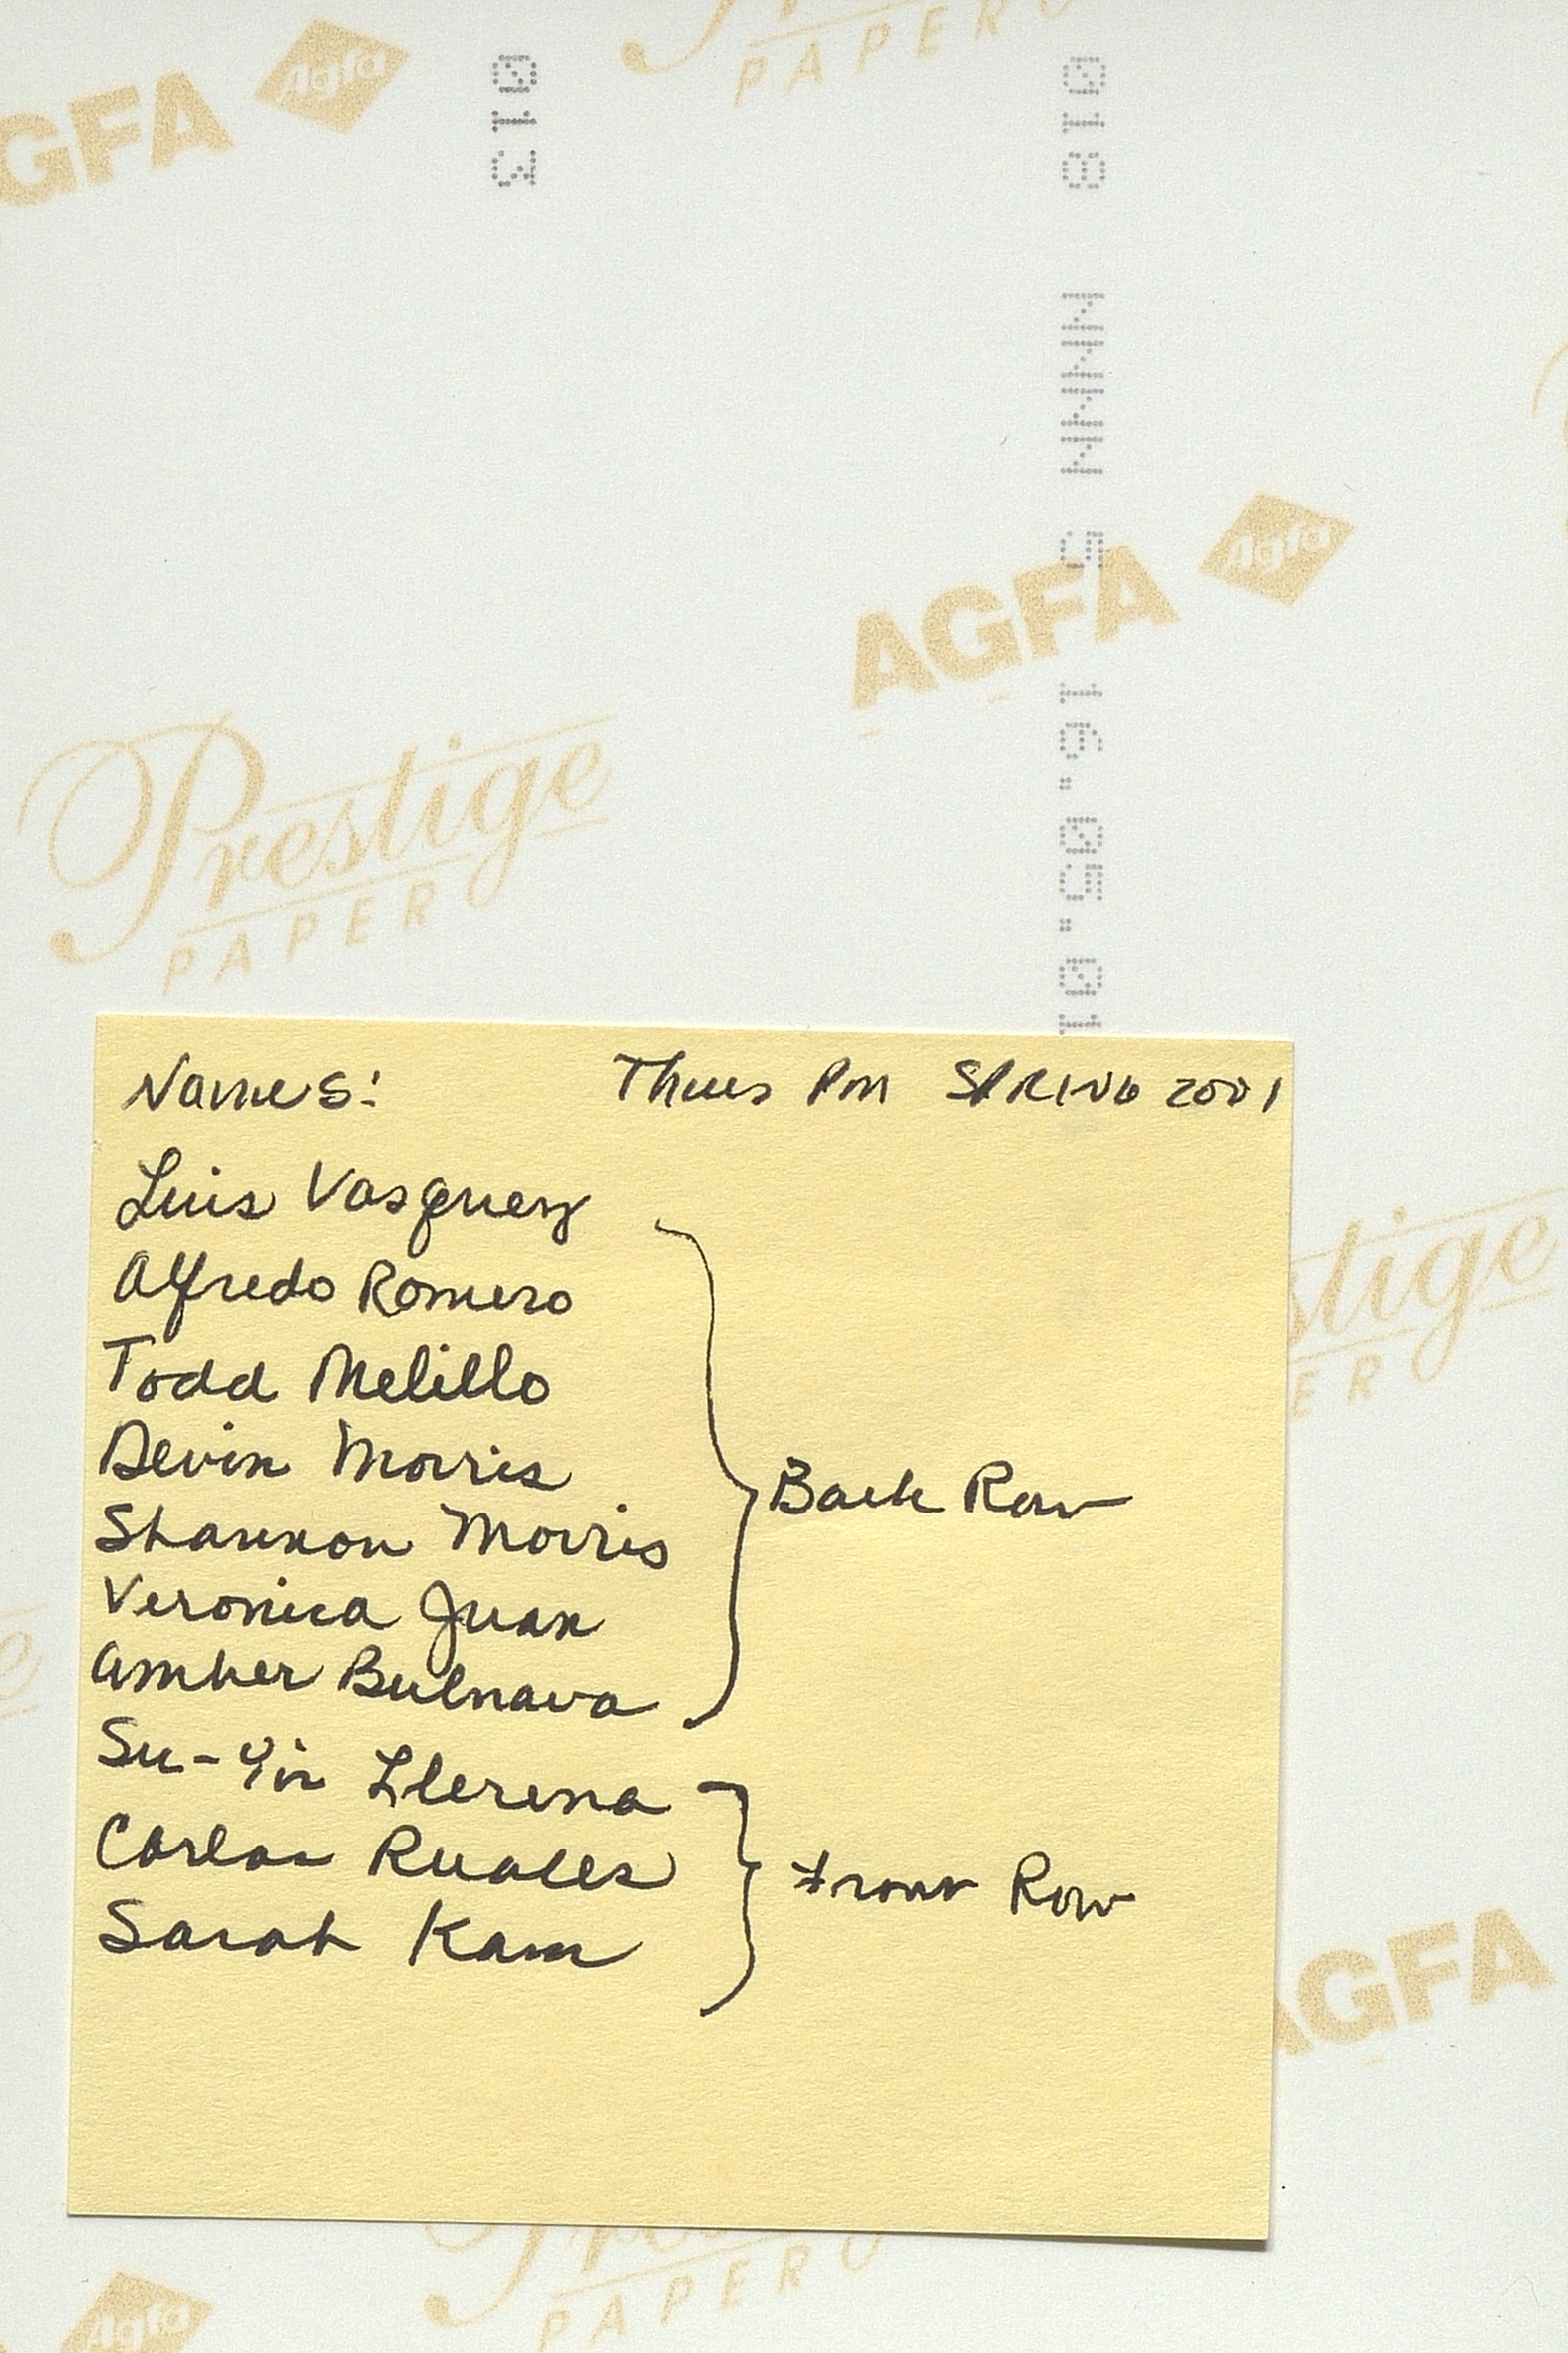 AGFA Agfa
PAPER
013
018 NNNN 5 16.05.01
AGFA Agfa
Prestige
PAPER
Names: Thurs PM SPRING 2001
Luis Vasquez
Alfredo Romero
Todd Melillo
Devin Morris
Shannon Morris
Veronica Juan
Amber Bulnava
Back Row
Su-Yin Llerena
Carlos Ruales
Sarah Kam
Front Row
stige
ER
AGFA
PAPER
Agfa